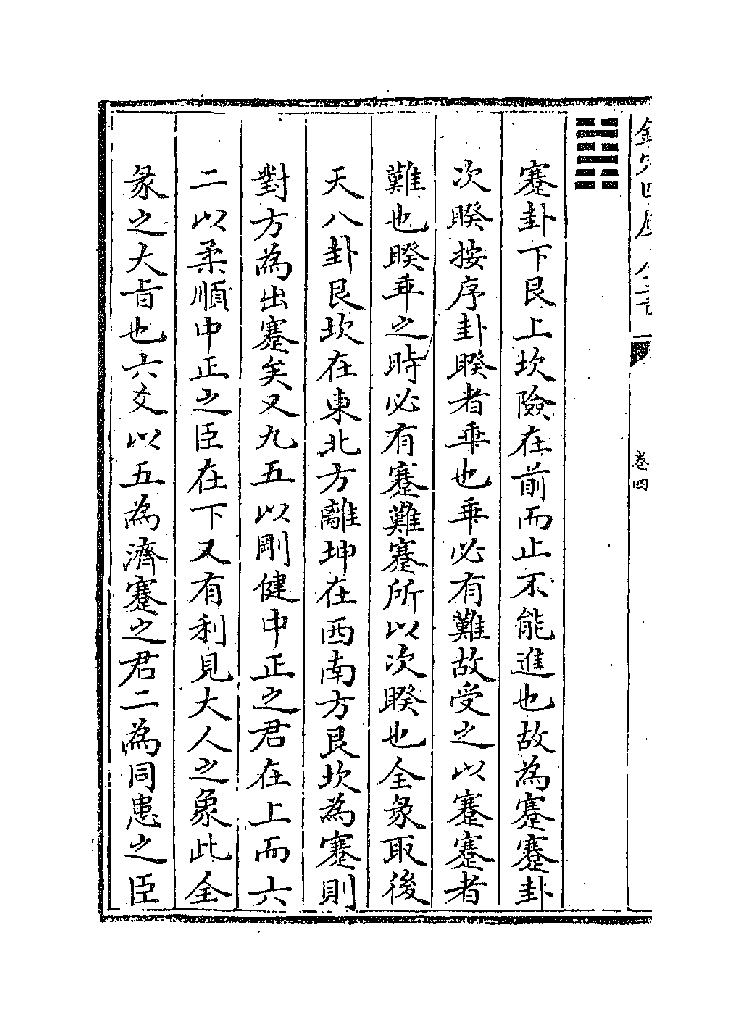 卷四
䷦
蹇卦下艮上坎險在前而止不能進也故為蹇蹇卦
次睽按序卦睽者乖也乖必有難故受之以蹇蹇者
難也睽乖之時必有蹇難蹇所以次睽也全彖取後
天八卦艮坎在東北方離坤在西南方艮坎為蹇則
對方為出蹇矣又九五以剛健中正之君在上而六
二以柔順中正之臣在下又有利見大人之象此全
彖之大旨也六爻以五為濟蹇之君二為同患之臣